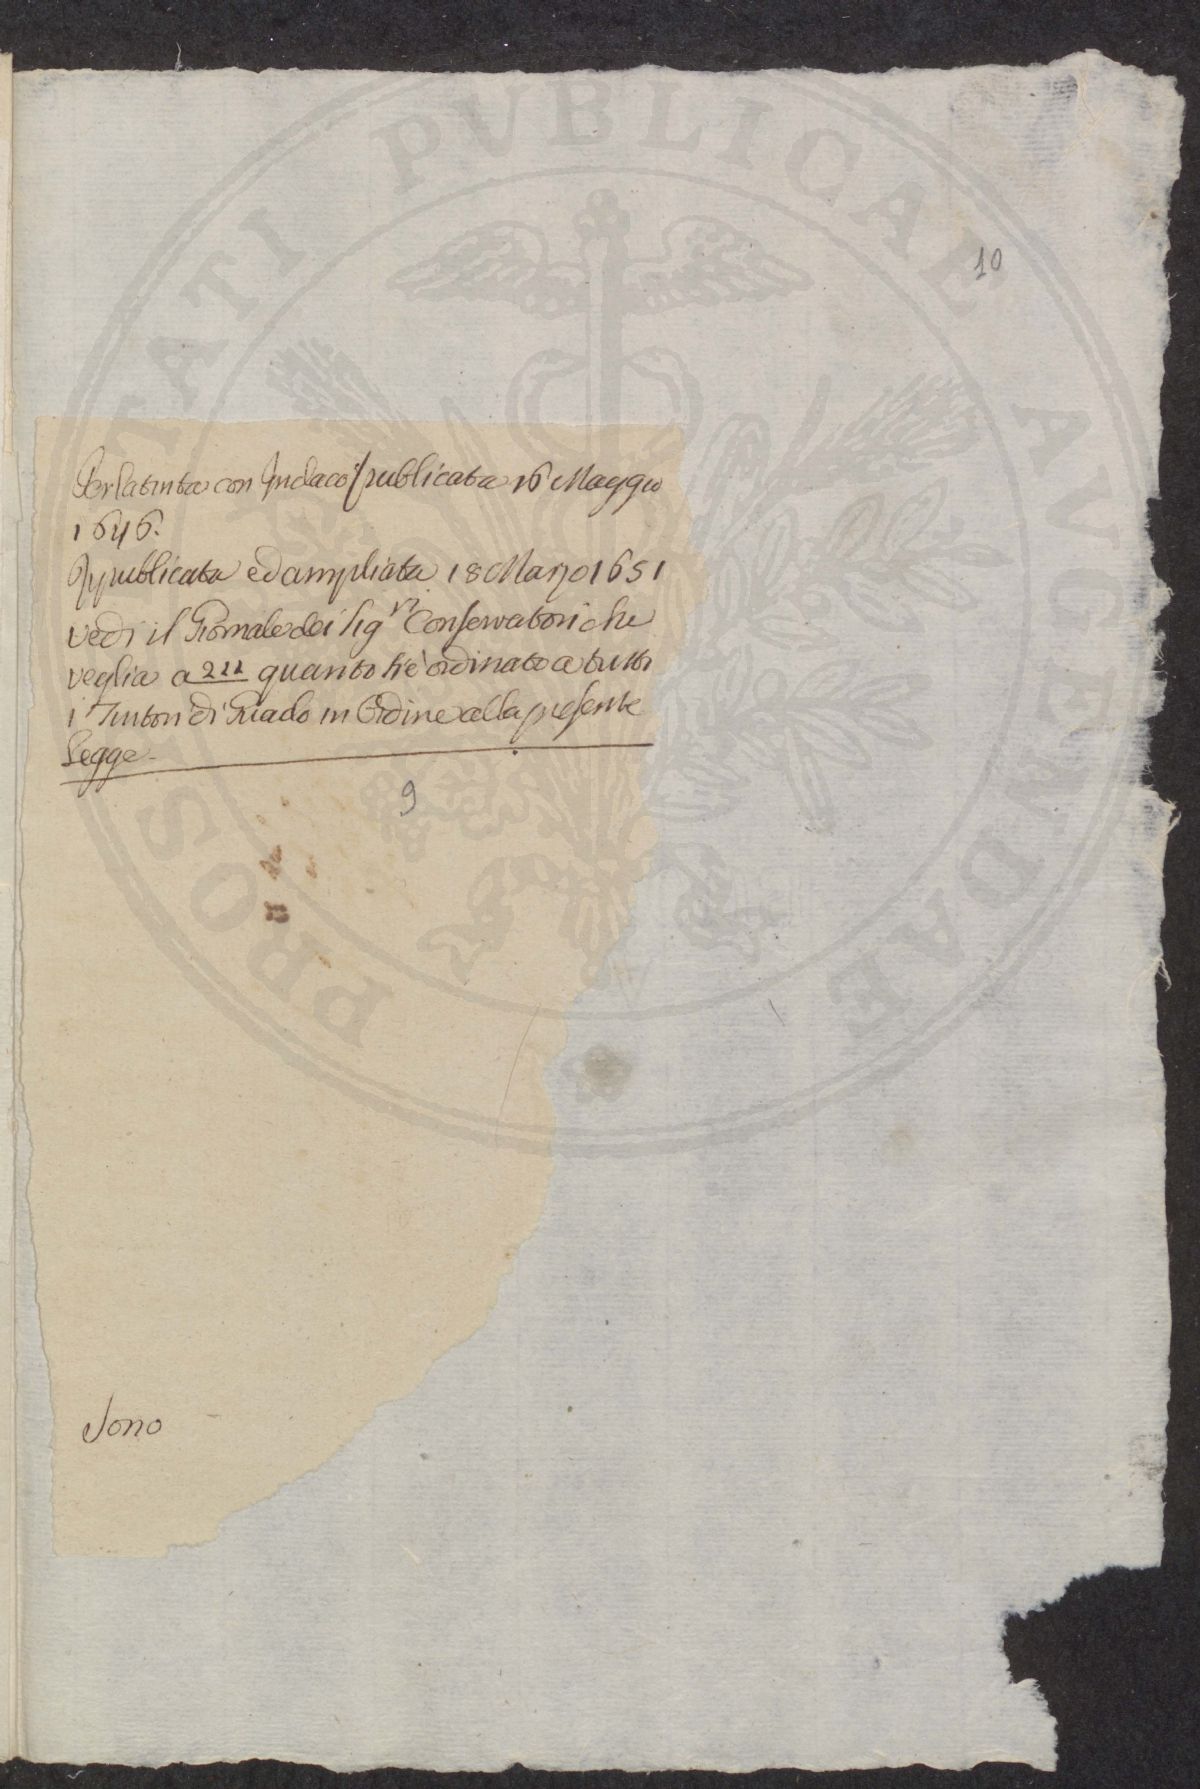 10
Per la tinta con Indaco publicata 16 Maggio
1646.
Ripublicata ed ampliata 18 Marzo 1651
vedi il Giornale dei Sig.ri Conservatori che
veglia a 211 quanto s'è ordinato a tutti
i Tintori di Guado in Ordine alla presente
Legge
9
Sono
PROSPERITATI PUBLICAE AUGENDAE